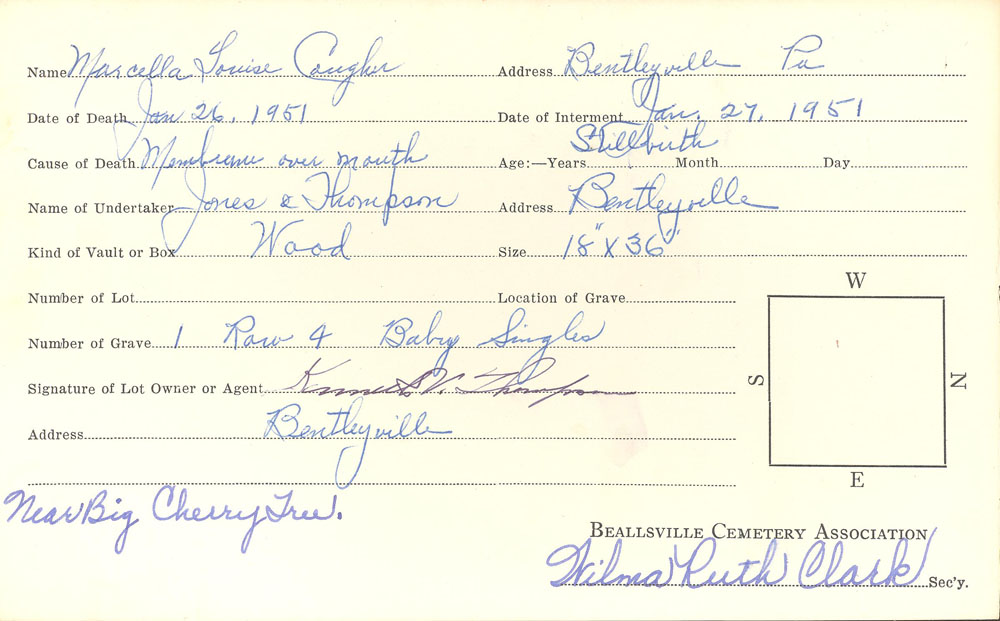 Name Marcella Louise Cougher Address Bentleyville Pa
Date of Death Jan 26, 1951 Date of Interment Jan. 27, 1951
Cause of Death Membrane over mouth Age:—Years Stillbirth Month Day
Name of Undertaker Jones & Thompson Address Bentleyville
Kind of Vault or Box Wood Size 18" X 36"
W
Number of Lot Location of Grave
Number of Grave 1 Row 4 Baby Singles
S N
Signature of Lot Owner or Agent Kenneth V. Thompson
Address Bentleyville
E
Near Big Cherry Tree.
BEALLSVILLE CEMETERY ASSOCIATION
Wilma Ruth Clark Sec'y.